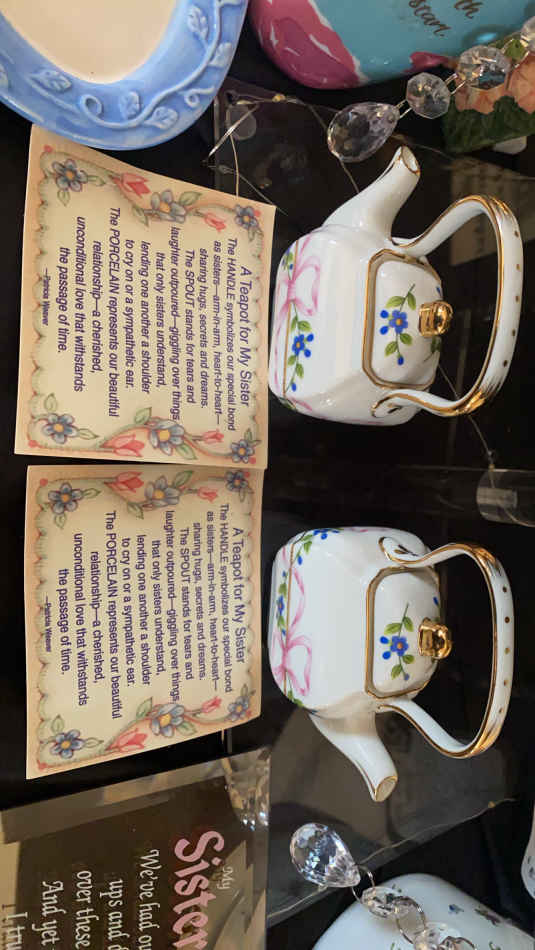 A Teapot for My Sister
The HANDLE symbolizes our special bond
as sisters—arm-in-arm, heart-to-heart—
sharing hugs, secrets and dreams.
The SPOUT stands for tears and
laughter outpoured—giggling over things
that only sisters understand,
lending one another a shoulder
to cry on or a sympathetic ear.
The PORCELAIN represents our beautiful
relationship—a cherished,
unconditional love that withstands
the passage of time.
—Patricia Weaver
A Teapot for My Sister
The HANDLE symbolizes our special bond
as sisters—arm-in-arm, heart-to-heart—
sharing hugs, secrets and dreams.
The SPOUT stands for tears and
laughter outpoured—giggling over things
that only sisters understand,
lending one another a shoulder
to cry on or a sympathetic ear.
The PORCELAIN represents our beautiful
relationship—a cherished,
unconditional love that withstands
the passage of time.
—Patricia Weaver
My
Sister
We've had ou
ups and d
over these
And yet
I tru